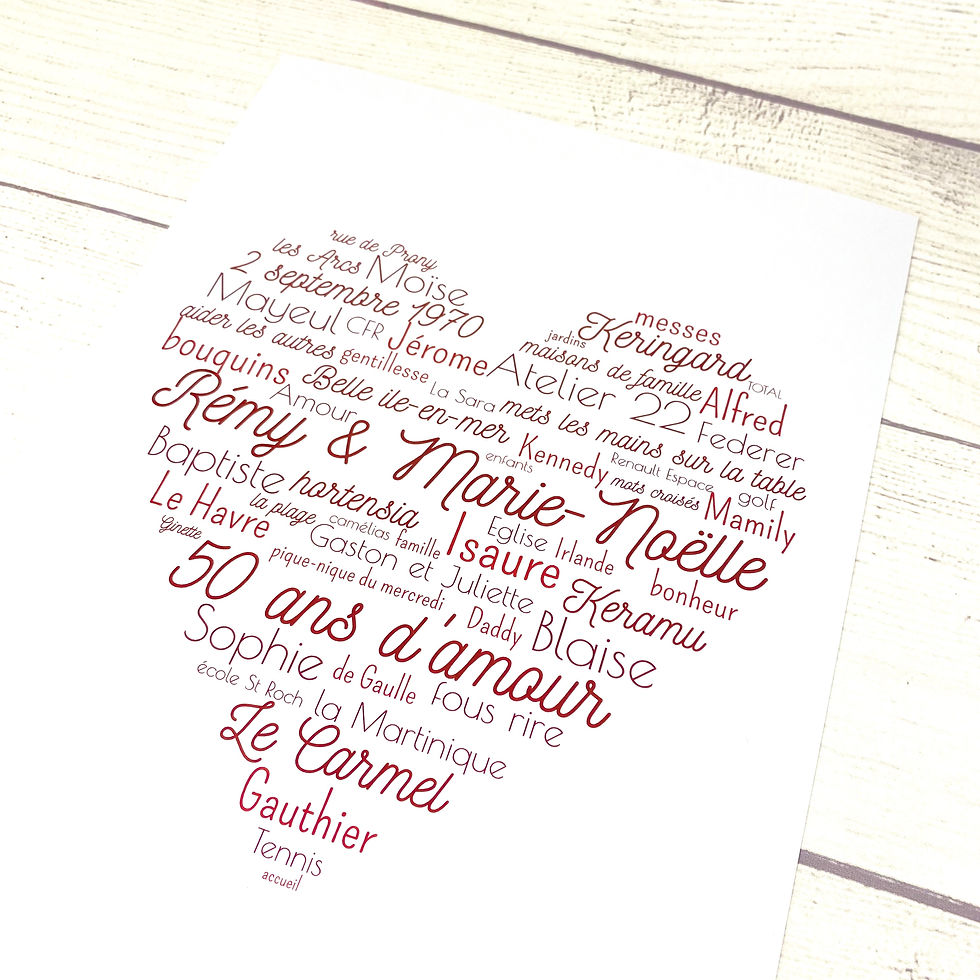 rue de Prony
les Arcs Moïse
2 septembre 1970
messes
Mayeul CFR Jérome
jardins Keringard
aider les autres gentillesse
maisons de famille TOTAL
bouquins Belle ile-en-mer La Sara Atelier 22 Alfred
Amour mets les mains sur la table Federer
Rémy & Marie-Noëlle
enfants Kennedy Renault Espace golf
mots croisés Mamily
Baptiste hortensia
Le Havre la plage camélias famille Isaure Eglise Irlande bonheur
Ginette Gaston et Juliette Keramu
pique-nique du mercredi Daddy Blaise
50 ans d'amour
Sophie de Gaulle fous rire
école St Roch la Martinique
Le Carmel
Gauthier
Tennis
accueil